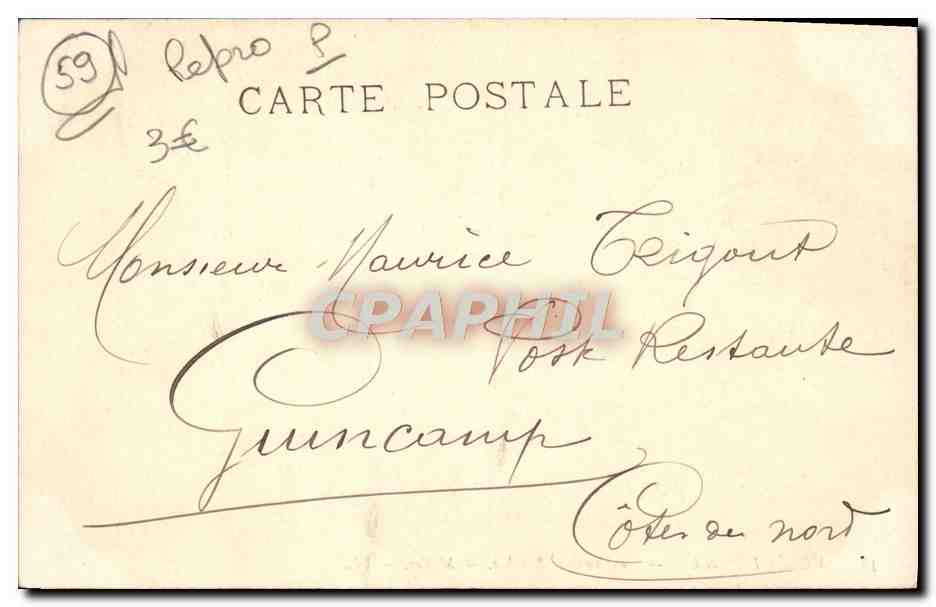 59 Repro P
CARTE POSTALE
3€
Monsieur Maurice Trigout
CPAPHIL
Poste Restante
Guincamp
Côtes du nord